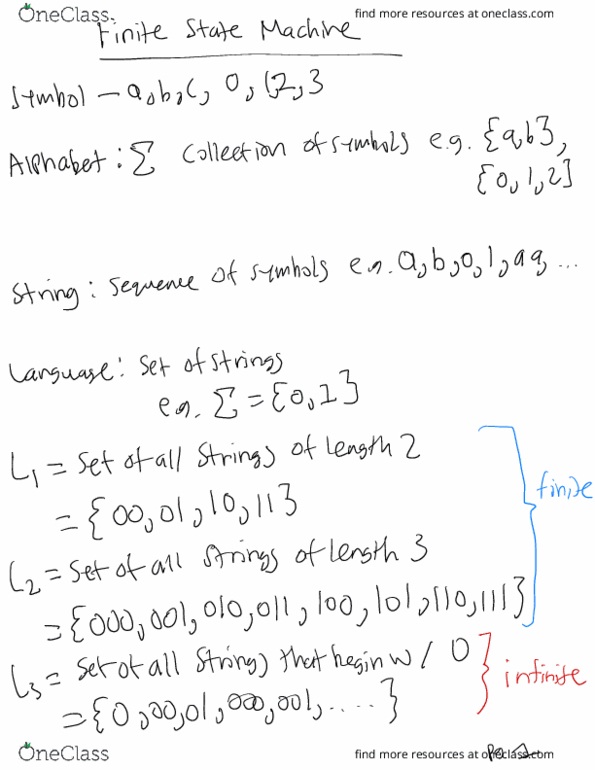 OneClass.
find more resources at oneclass.com
Finite State Machine
Symbol — a, b, c, 0, 1, 2, 3
Alphabet : Σ collection of symbols e.g. {a, b},
{0, 1, 2}
String : sequence of symbols e.g. a, b, 0, 1, aa, ...
Language : set of strings
e.g. Σ = {0, 1}
L1 = set of all strings of length 2
= {00, 01, 10, 11}
finite
L2 = set of all strings of length 3
= {000, 001, 010, 011, 100, 101, 110, 111}
L3 = set of all strings that begin w/ 0
infinite
= {0, 00, 01, 000, 001, .....}
OneClass
find more resources at oneclass.com